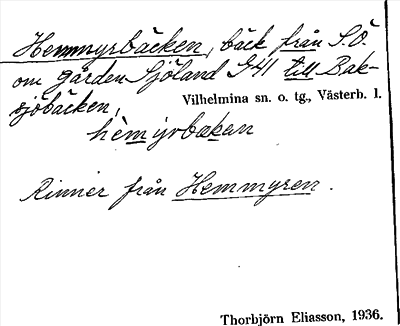 Hemmyrbäcken, bäck från S.Ö.
om gården Sjöland G41 till Bak-
sjöbäcken,
Vilhelmina sn. o. tg., Västerb. l.
hèmyrbaken
Rinner från Hemmyren.
Thorbjörn Eliasson, 1936.